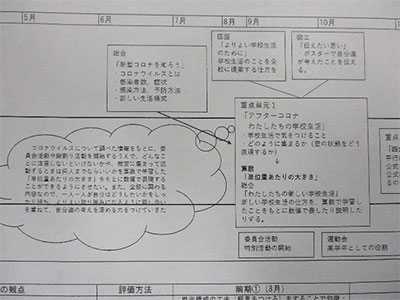 5月
6月
7月
8月
9月
10月
総合
「新型コロナを知ろう」
・コロナウイルスとは
・感染者数、症状
・感染方法、予防方法
・新しい生活様式
国語
「よりよい学校生活
のために」
学校生活のことを全校
に提案する仕方を
図工
「伝えたい思い」
・ポスターで自分達
が考えたことを伝え
る。
重点単元1
「アフターコロナ
わたしたちの学校生活」
・学校生活で気をつけること
・どのように集まるか（密の状態をどう
表現するか）
算数
「単位量あたりの大きさ」
総合
「わたしたちの新しい学校生活」
新しい学校生活の仕方を、算数で学習し
たことをもとに数値で表したり説明した
りする。
コロナウイルスについて調べた情報をもとに、委
員会活動や縦割り活動を開始するうえで、どんなこ
とに注意しないといけないかや、教室に集まって活
動するときは何人までならいいかを算数で学習した
「単位量あたりの大きさ」をもとに数値で表現する
ことができるようにさせたい。また、全校に関わる
内容なので、一人一人が自分はどうしたいかをしっ
を重ねて、自分達の考えを深める力をつけていきた
委員会活動
特別活動の開始
運動会
高学年としての役割
の観点
評価方法
前期①（8月）